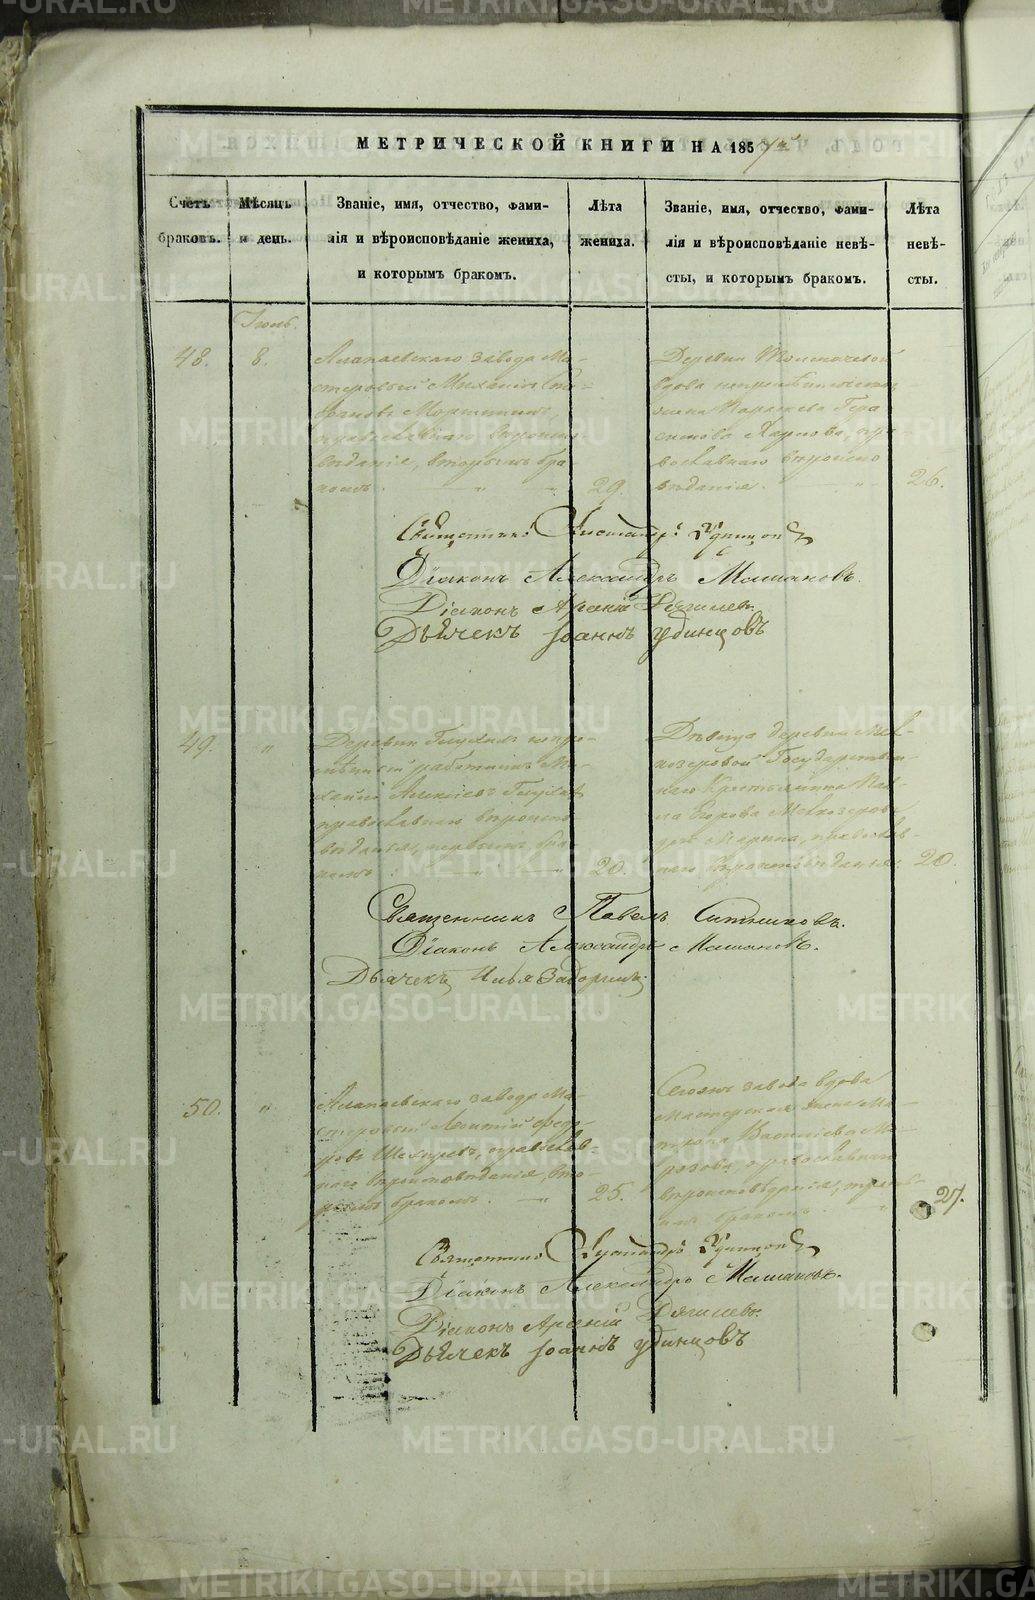 МЕТРИЧЕСКОЙ КНИГИ НА 185
Счетъ браковъ.
Мѣсяцъ и день.
Званіе, имя, отчество, фами-
лія и вѣроисповѣданіе жениха,
и которымъ бракомъ.
Лѣта
жениха.
Званіе, имя, отчество, фами-
лія и вѣроисповѣданіе невѣ-
сты, и которымъ бракомъ.
Лѣта
невѣ-
сты.
48.
8.
Алапаевскаго завода Ма-
стеровый Михаилъ
православнаго вѣроиспо-
вѣданія, вторымъ бра-
комъ.
29.
Деревни
вдова
Гера-
симова пра-
вославнаго вѣроиспо
вѣданія.
26.
Священникъ Александръ Удинцов
Діаконъ Александръ Машановъ.
Діаконъ Арсеній Дягилевъ.
Дьячекъ Іоаннъ Удинцовъ
49.
"
Деревни непре-
мѣнный работникъ Ми-
хаилъ Алексѣевъ
православнаго вѣроиспо
вѣданія, первымъ бра-
комъ.
20.
Дѣвица деревни
Государствен-
наго Крестьянина Пав-
ла Егорова Мелкозерова
дочь Марина, православ-
наго вѣроисповѣданія.
20.
Священникъ Павелъ Ситниковъ.
Діаконъ Александръ Машановъ.
Дьячекъ Илья Задоринъ
50.
"
Алапаевскаго завода Ма-
стеровый Леонтій Федо-
ровъ православ-
наго вѣроисповѣданія, вто-
рымъ бракомъ.
25.
завода вдова
Мастерская жена Ма-
трона Васильева Мо-
розова, православнаго
вѣроисповѣданія, треть-
имъ бракомъ
27.
Священникъ Александръ Удинцов
Діаконъ Александръ Машановъ.
Діаконъ Арсеній Дягилевъ.
Дьячекъ Іоаннъ Удинцовъ
METRIKI.GASO-URAL.RU